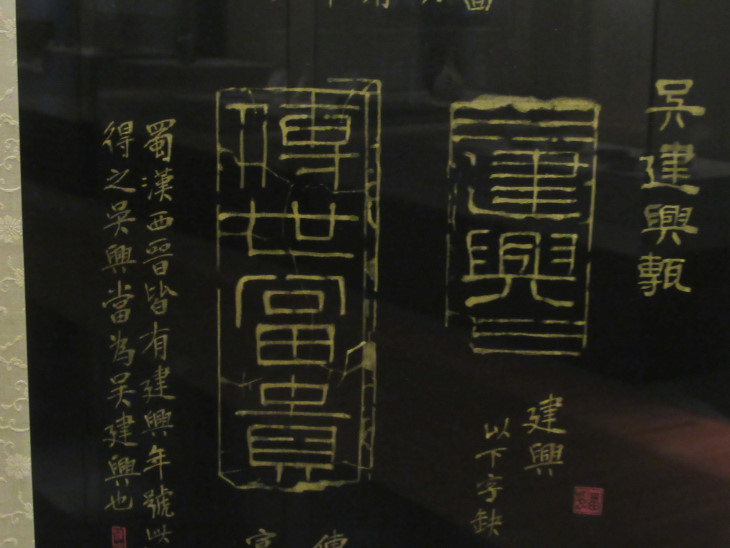 吳建興甎
建興
建興
以下字缺
傳世富貴
蜀漢西晉皆有建興年號
得之吳興當為吳建興也